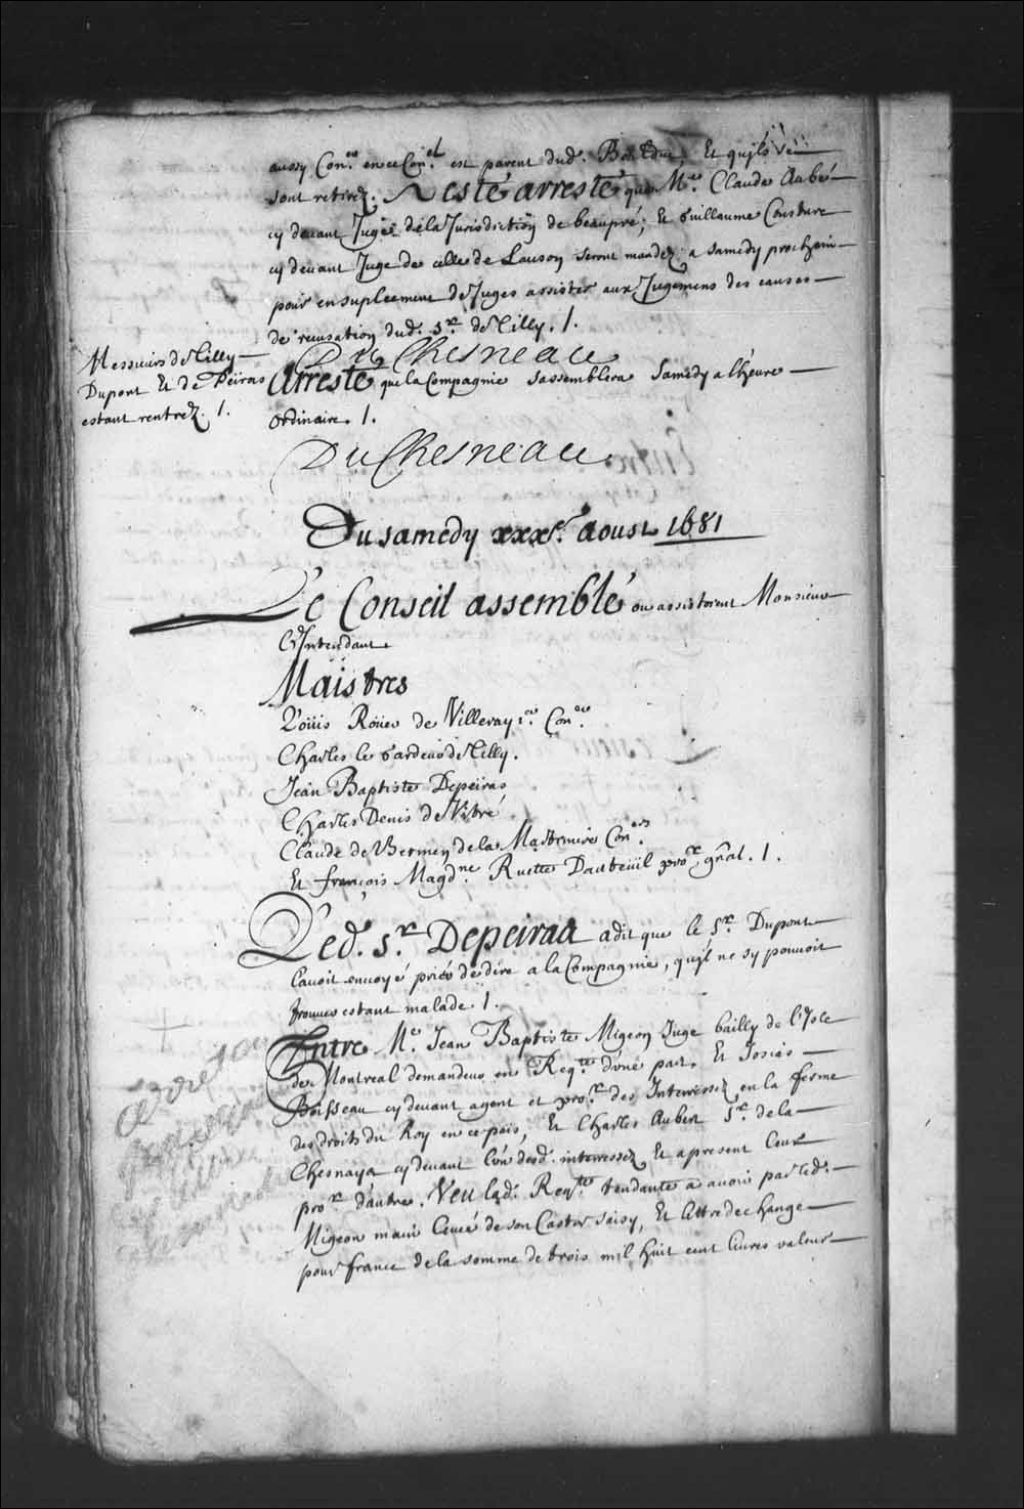 aussy Con.er en ce Con.el est parent dud. Boisduc, Et quils se
sont retirez. A esté arresté que M.e Claude Aubé
cy devant Juge de la Jurisdiction de beaupré; Et Guillaume Cousture
cy devant Juge de celle de Lauson seront mandez a samedy prochain
pour en supleement de Juges assister aux Jugemens des causes
de recusation dud. S.r de Tilly. /.
DuChesneau
Messieurs de Tilly
Dupont Et de Peiras
estant rentrez. /.
Arresté que la Compagnie sassemblera Samedy a lheure
ordinaire. /.
DuChesneau
Du samedy xxxj.e aoust 1681
Le Conseil assemblé ou assistoient Monsieur
L'Intendant
Maistres
Loüis Roüer de Villeray 1.er Con.er
Charles le Gardeur de Tilly.
Jean Baptiste Depeiras
Charles Denis de Vitré
Claude de Bermen de la Martiniere Con.ers
Et françois Magd.ne Ruette Dauteüil pro.r gñal. /.
Led. S.r Depeiras a dit que le S.r Dupont
lavoit envoyé prier de dire a la Compagnie, quil ne sy pouvoit
trouver estant malade. /.
Entre M.e Jean Baptiste Migeon Juge bailly de l'Isle
de Montreal demandeur en Req.te d'une part. Et Josias
Boisseau cy devant agent et pro.r des Interressez en la ferme
des droits du Roy en ce païs, Et Charles Aubert S.r de la
Chesnaya cy devant l'un desd. interressez Et a present leur
pro.r dautre. Veu lad. Req.te tendante a avoir par led.
Migeon main levée de son Castor saisy, Et lettre de change
pour france de la somme de trois mil huit cent livres valeur